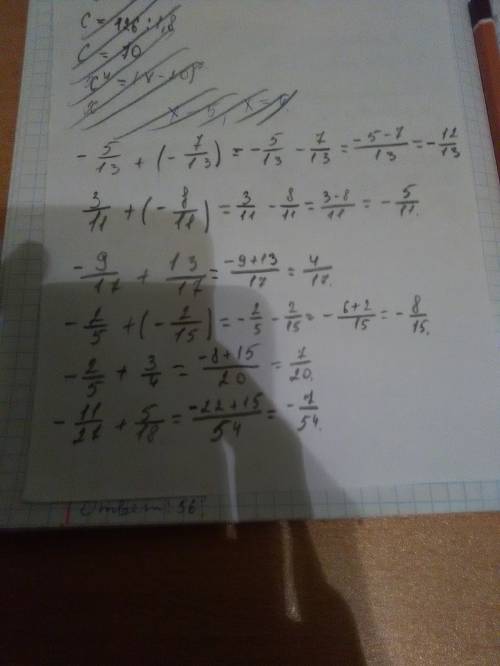 C = 126 : 1,8
C = 70
-5/13 + (-7/13) = -5/13 - 7/13 = -5-7/13 = -12/13
3/11 + (-8/11) = 3/11 - 8/11 = 3-8/11 = -5/11.
-9/17 + 13/17 = -9+13/17 = 4/17.
-2/5 + (-2/15) = -2/5 - 2/15 = -6+2/15 = -8/15.
-2/5 + 3/4 = -8+15/20 = 7/20.
-11/27 + 5/18 = -22+15/54 = -7/54.
Ответ: 56